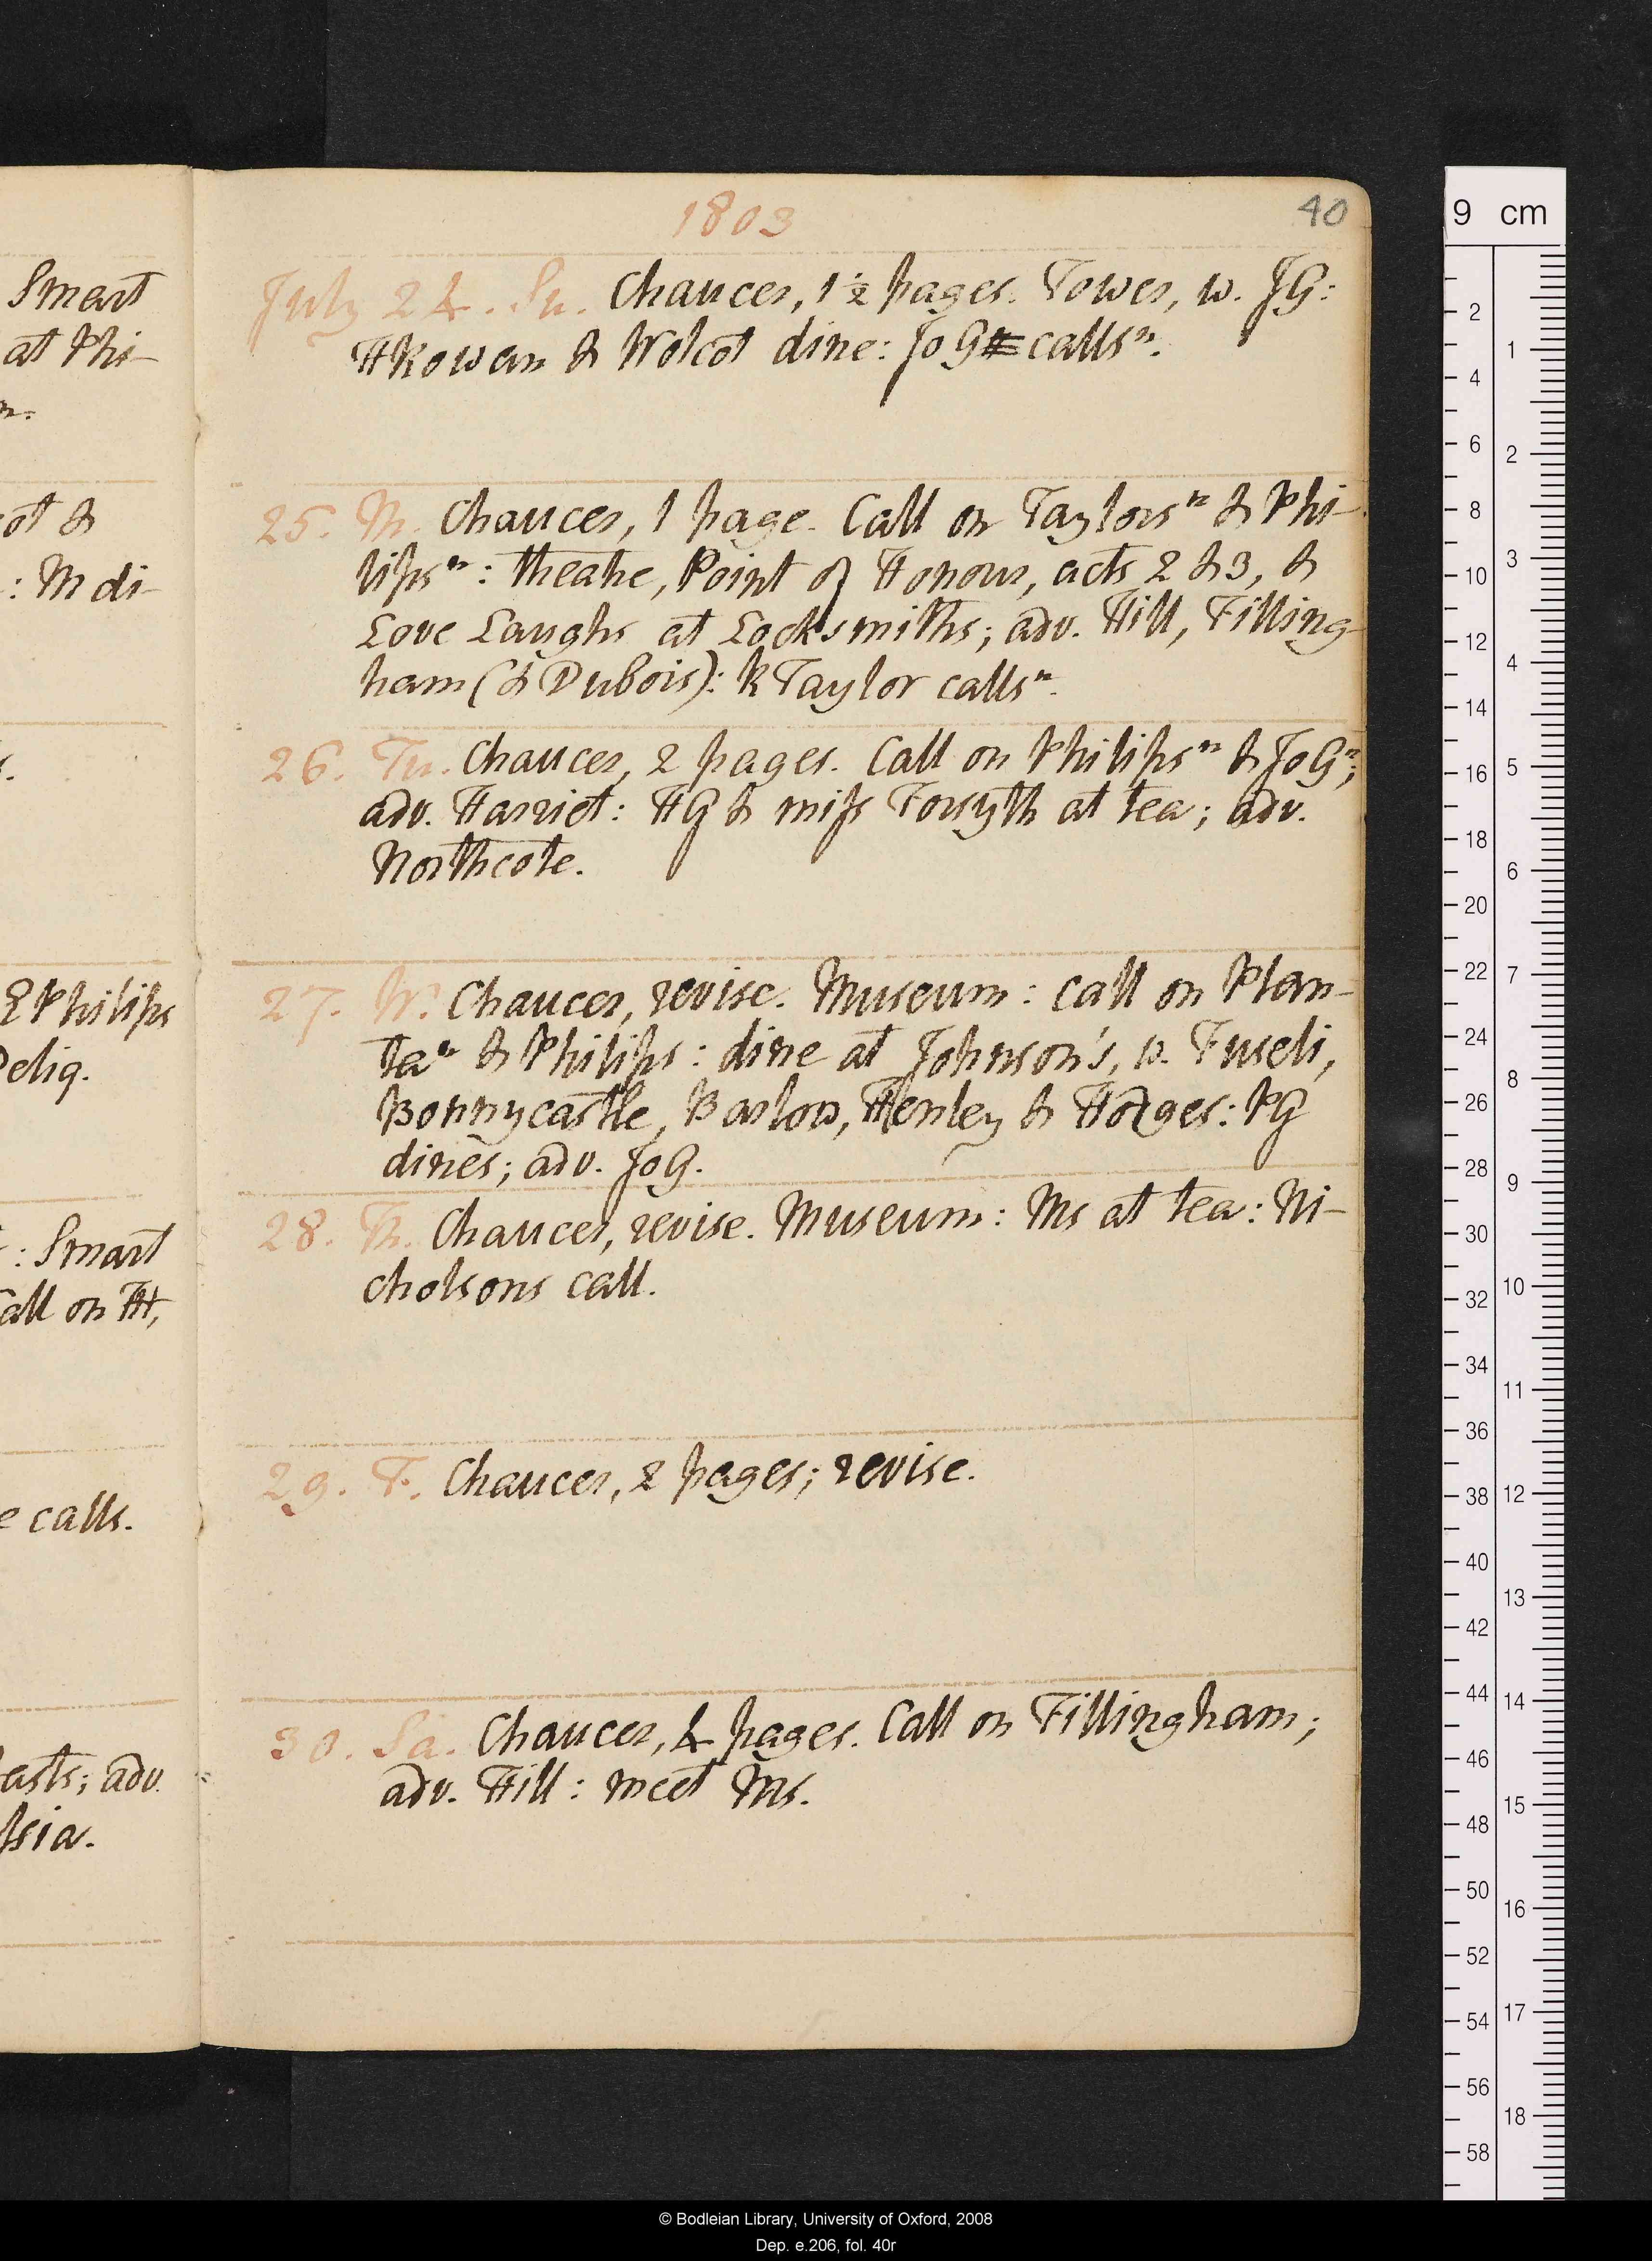 1803
40
July 24. Su. Chaucer, 1 ½ pages. Tower, w. JG:
HRowan & Wolcot dine: JoG callsⁿ.
25. M. Chaucer, 1 page. Call on Taylorsⁿ & Phi-
lipsⁿ: theatre, Point of Honour, acts 2 & 3, &
Love Laughs at Locksmiths; adv. Hill, Filling-
ham (& Dubois): RTaylor callsⁿ.
26. Tu. Chaucer, 2 pages. Call on Philipsⁿ & JoGⁿ;
adv. Harriet: HG & miss Forsyth at tea; adv.
Northcote.
27. W. Chaucer, revise. Museum: call on Plan-
taⁿ & Philips: dine at Johnson's, w. Fuseli,
Bonnycastle, Barlow, Henley & Hodges: PG
dines; adv. JoG.
28. Th. Chaucer, revise. Museum: Ms at tea: Ni-
cholsons call.
29. F. Chaucer, 2 pages; revise.
30. Sa. Chaucer, 4 pages. Call on Fillingham;
adv. Hill: meet Ms.
Smart
at Phi-
n.
ot &
: M di-
s.
E Philips
Delig.
: Smart
Call on TH,
e calls.
asts; adv.
ssia.
9 cm
2
4
6
8
10
12
14
16
18
20
22
24
26
28
30
32
34
36
38
40
42
44
46
48
50
52
54
56
58
1
2
3
4
5
6
7
8
9
10
11
12
13
14
15
16
17
18
© Bodleian Library, University of Oxford, 2008
Dep. e.206, fol. 40r